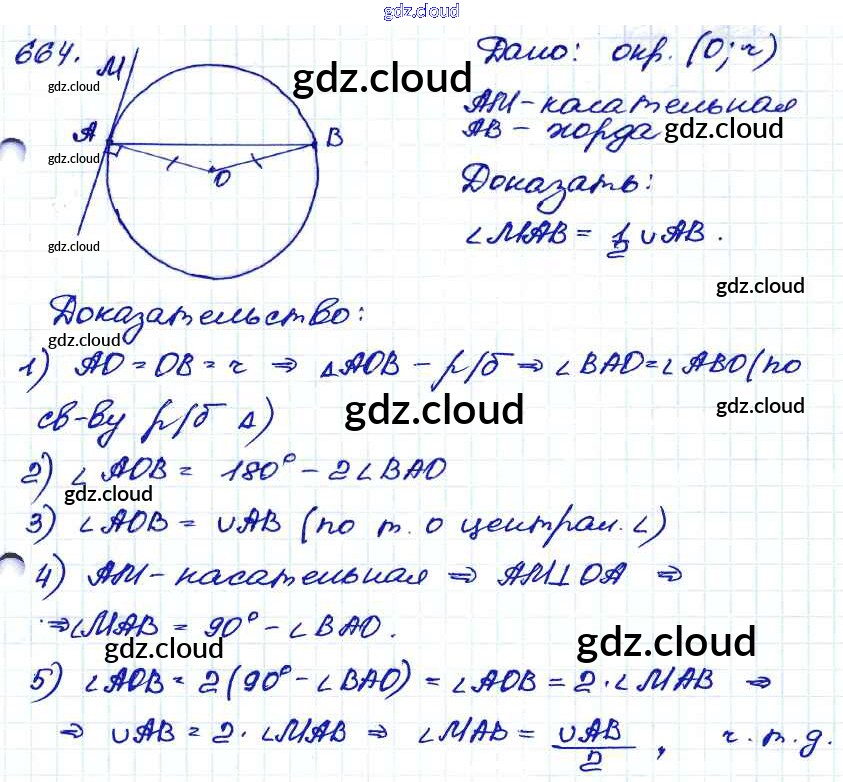 gdz.cloud
664.
M
gdz.cloud
gdz.cloud
A
B
O
gdz.cloud
gdz.cloud
Дано: окр. (O; r)
AM - касательная
AB - хорда gdz.cloud
Доказать:
∠MAB = 1/2 ∪AB.
gdz.cloud
Доказательство:
gdz.cloud
1) AO = OB = r ⇒ △AOB - р/б ⇒ ∠BAO = ∠ABO (по
св-ву р/б △)
gdz.cloud
gdz.cloud
2) ∠AOB = 180° - 2∠BAO
gdz.cloud
3) ∠AOB = ∪AB (по т. о централ. ∠)
4) AM - касательная ⇒ AM⊥OA ⇒
⇒ ∠MAB = 90° - ∠BAO.
gdz.cloud
gdz.cloud
5) ∠AOB = 2(90° - ∠BAO) = ∠AOB = 2·∠MAB ⇒
⇒ ∪AB = 2·∠MAB ⇒ ∠MAB = ∪AB/2, ч.т.д.